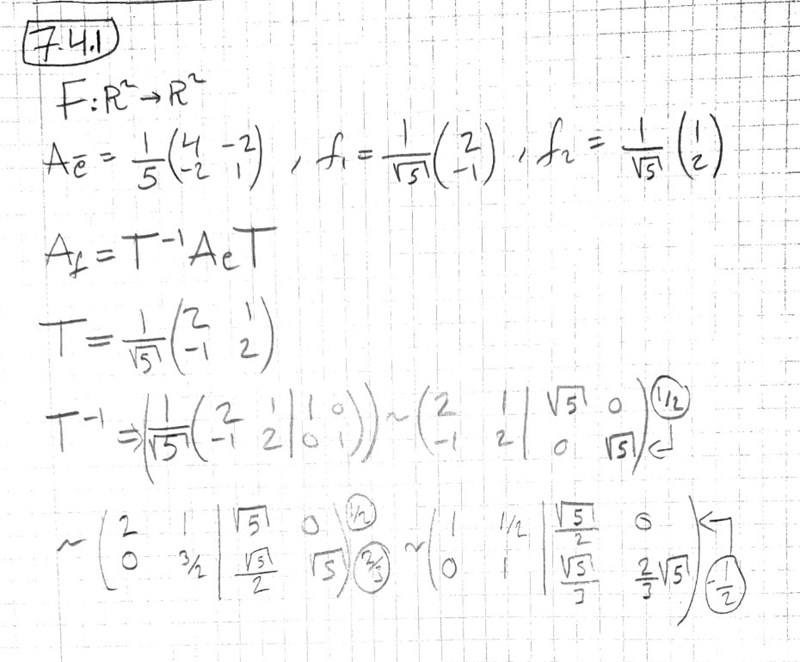 7.4.1
F: R² → R²
A_ē = 1/5 (4 -2; -2 1), f₁ = 1/√5 (2; -1), f₂ = 1/√5 (1; 2)
A_f = T⁻¹ A_e T
T = 1/√5 (2 1; -1 2)
T⁻¹ ⇒ (1/√5 (2 1 | 1 0; -1 2 | 0 1)) ~ (2 1 | √5 0; -1 2 | 0 √5) (1/2) ↵
~ (2 1 | √5 0; 0 3/2 | √5/2 √5) (1/2) (2/3) ~ (1 1/2 | √5/2 0; 0 1 | √5/3 2/3 √5) ← (-1/2)